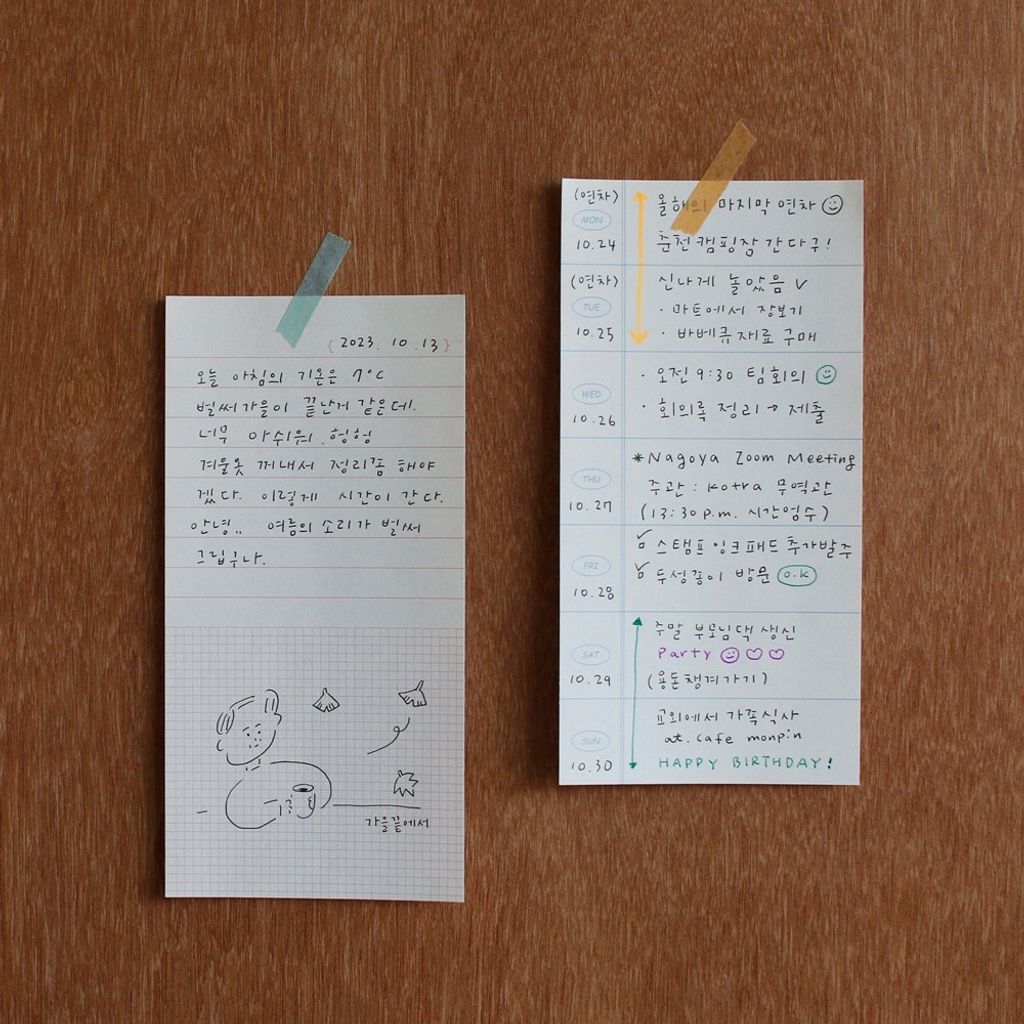 { 2023. 10. 13 }
오늘 아침의 기온은 7°C
벌써가을이 끝난거 같은데.
너무 아쉬워. 헝헝
겨울옷 꺼내서 정리좀 해야
겠다. 이렇게 시간이 간다.
안녕.. 여름의 소리가 벌써
그립구나.
가을끝에서
(연차)
MON
10.24
올해의 마지막 연차
춘천 캠핑장 간다구!
(연차)
TUE
10.25
신나게 놀았음 V
· 마트에서 장보기
· 바베큐 재료 구매
WED
10.26
· 오전 9:30 팀회의
· 회의록 정리 → 제출
THU
10.27
*Nagoya Zoom Meeting
주관 : kotra 무역관
(13:30 p.m. 시간엄수)
FRI
10.28
✓ 스탬프 잉크패드 추가발주
✓ 두성종이 방문 O.K
SAT
10.29
주말 부모님댁 생신
Party ♡♡
(용돈챙겨가기)
SUN
10.30
교외에서 가족식사
at. cafe monpin
HAPPY BIRTHDAY!